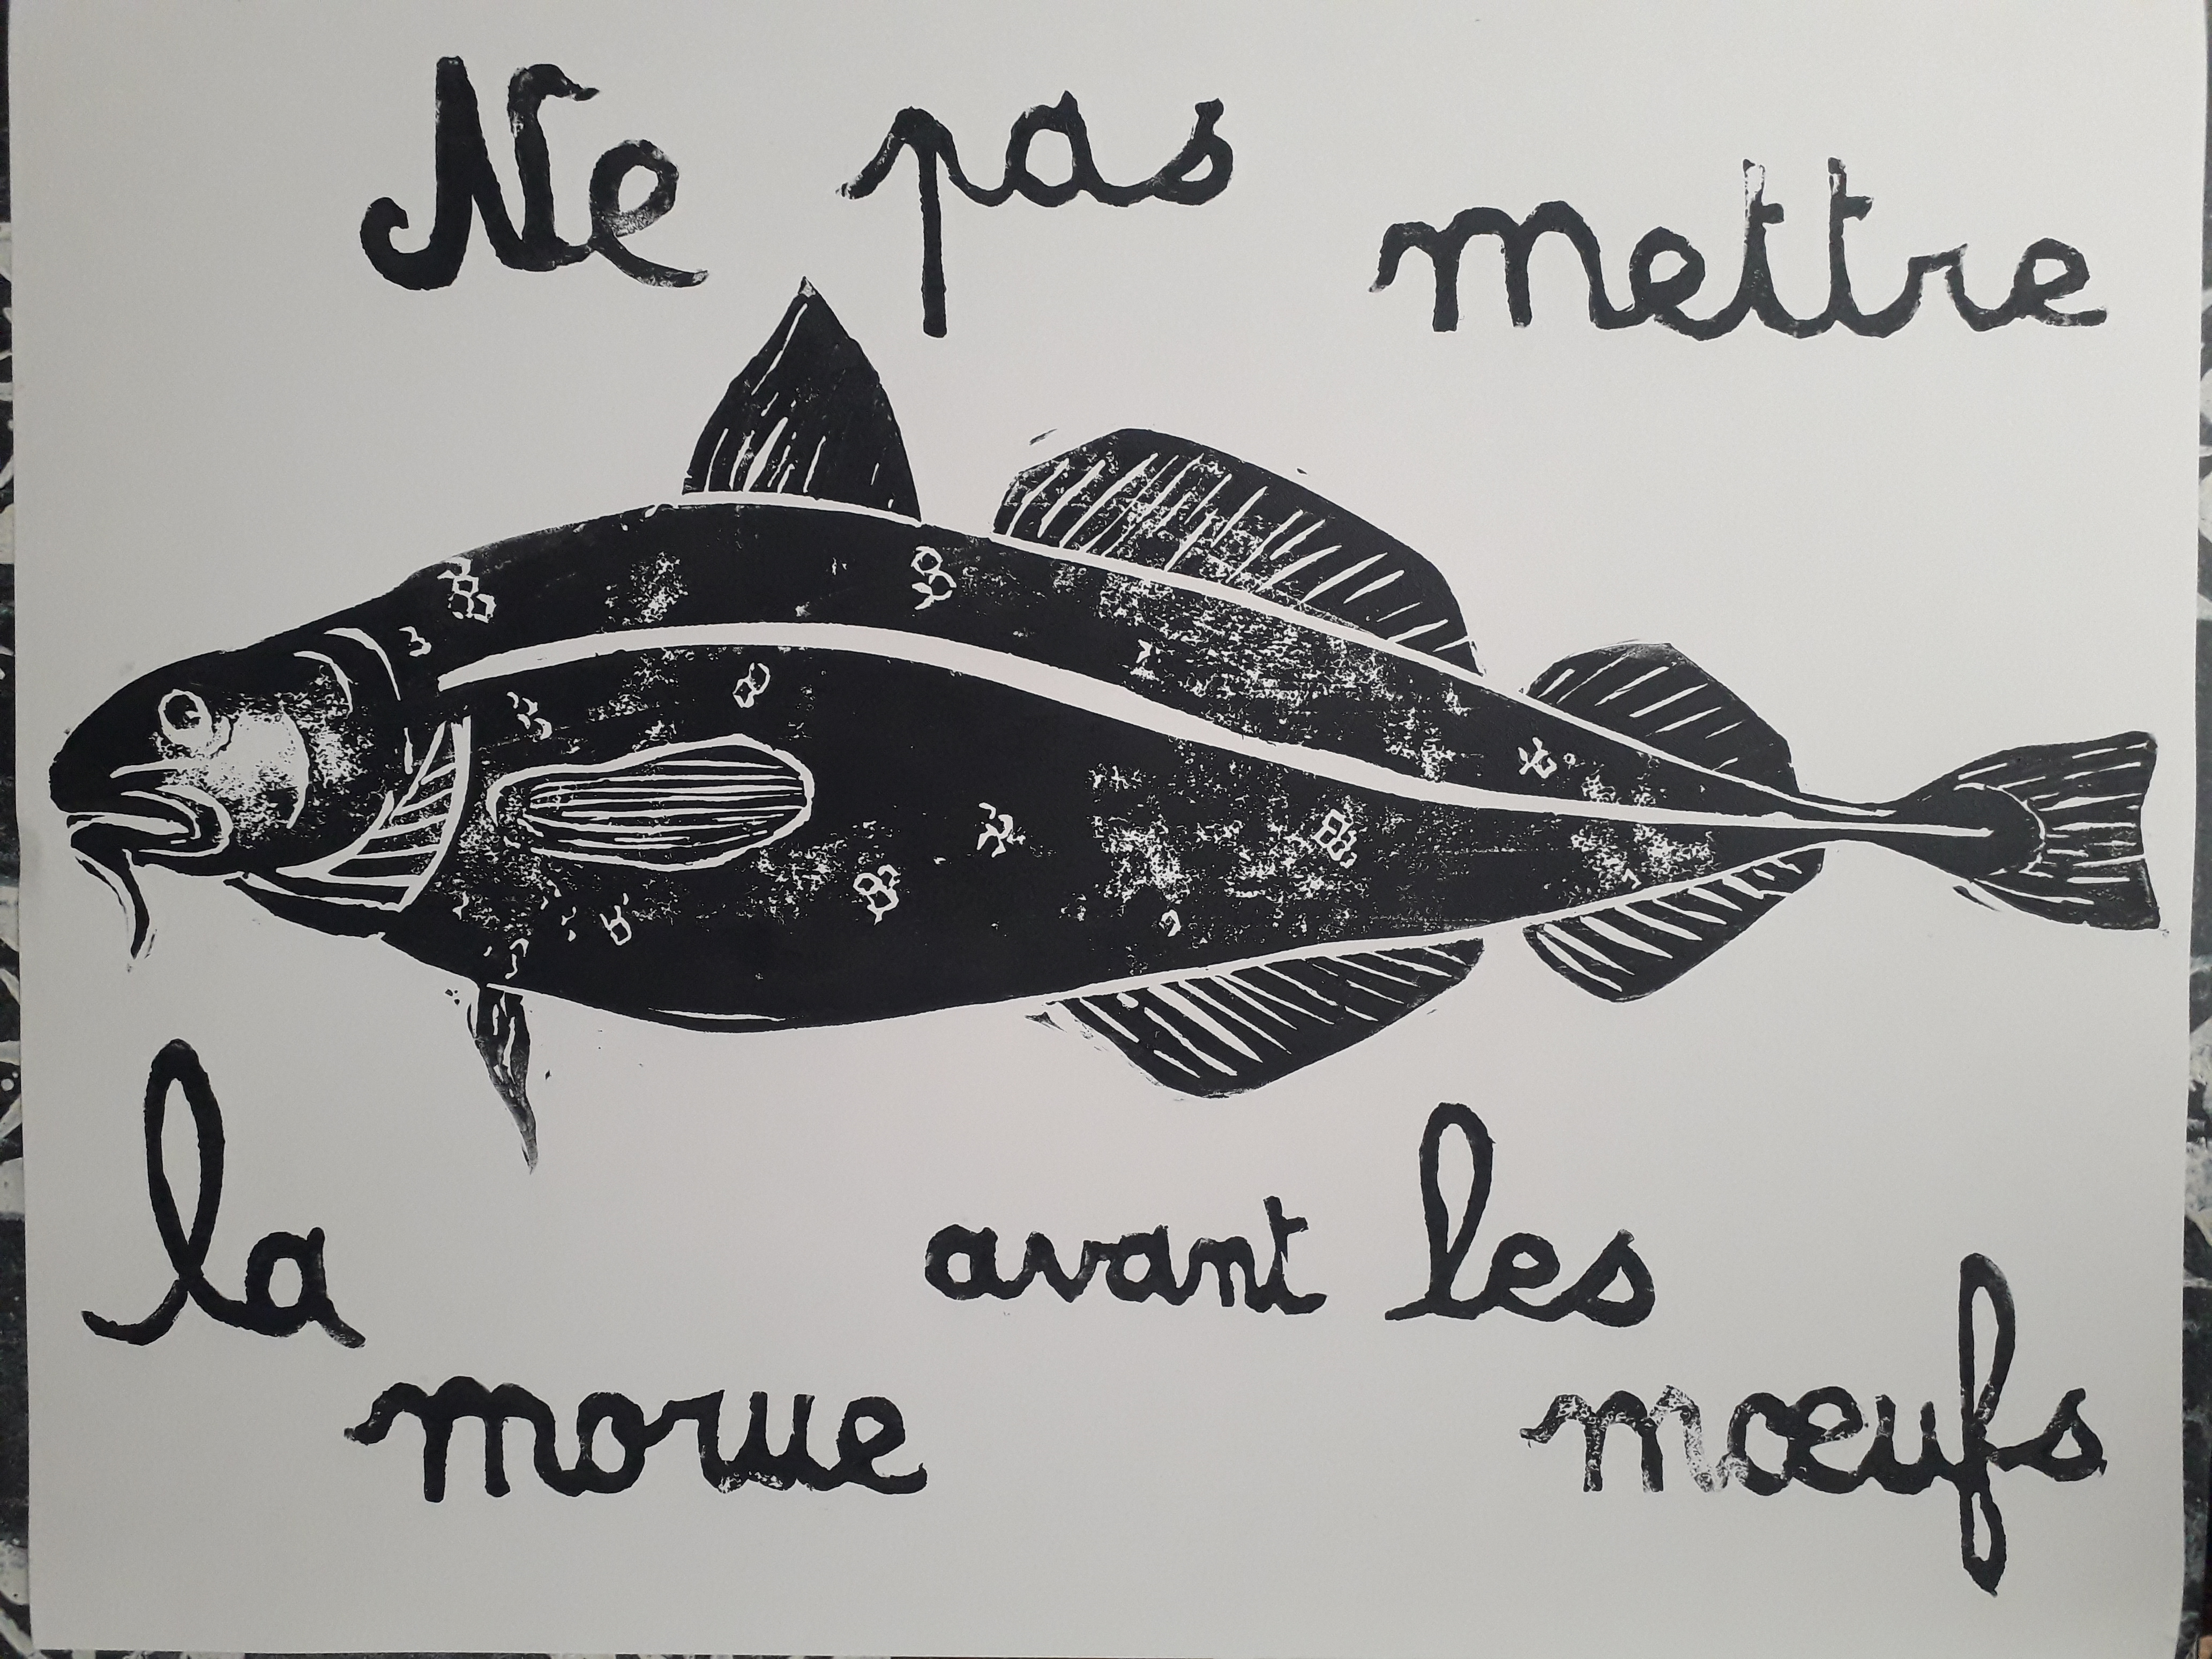 Ne pas mettre
la avant les
morue mœufs